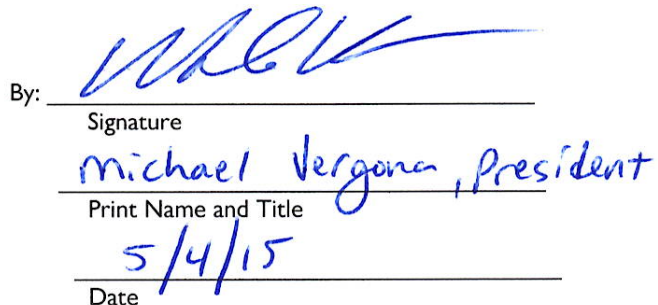 By:
Signature
Michael Vergona, President
Print Name and Title
5/4/15
Date